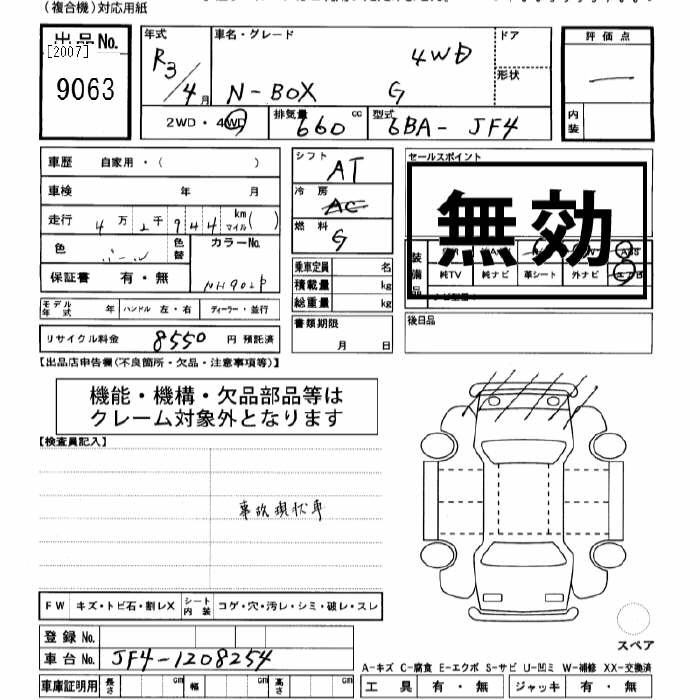 (複合機)対応用紙
出品No.
[2007]
9063
年式 R3/4月
車名・グレード N-BOX G 4WD
ドア
形状
評価点
—
内装
2WD・4WD
排気量 660 cc
型式 6BA-JF4
車歴 自家用・( )
車検 年 月
走行 4万2千944 km マイル( )
色 パール 色替
カラーNo. NH902P
保証書 有・無
モデル年式 年 ハンドル 左・右 ディーラー・並行
リサイクル料金 8550 円 預託済
シフト AT
冷房 AC
燃料 G
乗車定員 名
積載量 kg
総重量 kg
書類期限
月 日
セールスポイント
無効
装備品
ABS
純TV 純ナビ 革シート 外ナビ エアB
後日品
【出品店申告欄(不良箇所・欠品・注意事項等)】
機能・機構・欠品部品等は
クレーム対象外となります
【検査員記入】
事故現状車
FW キズ・トビ石・割レX シート内装 コゲ・穴・汚レ・シミ・破レ・スレ
登録No.
車台No. JF4-1208254
車庫証明用 長さ cm 幅 cm 高さ cm
スペア
A-キズ C-腐食 E-エクボ S-サビ U-凹ミ W-補修 XX-交換済
工具 有・無 ジャッキ 有・無